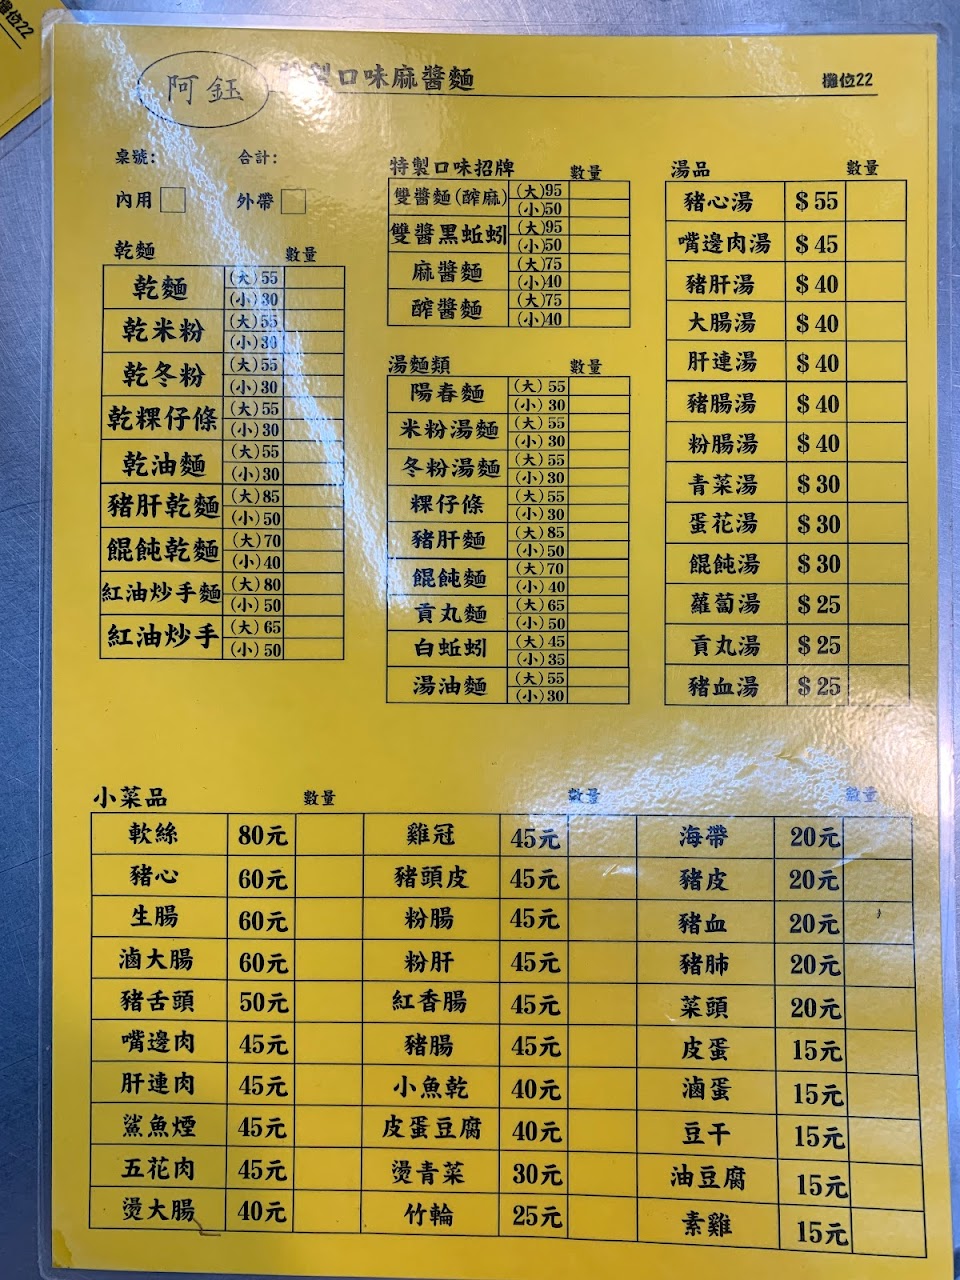 攤位22
阿鈺 特製口味麻醬麵 攤位22
桌號： 合計：
內用 外帶
乾麵 數量
乾麵 (大)55 (小)30
乾米粉 (大)55 (小)30
乾冬粉 (大)55 (小)30
乾粿仔條 (大)55 (小)30
乾油麵 (大)55 (小)30
豬肝乾麵 (大)85 (小)50
餛飩乾麵 (大)70 (小)40
紅油炒手麵 (大)80 (小)50
紅油炒手 (大)65 (小)50
特製口味招牌 數量
雙醬麵(醡麻) (大)95 (小)50
雙醬黑蚯蚓 (大)95 (小)50
麻醬麵 (大)75 (小)40
醡醬麵 (大)75 (小)40
湯麵類 數量
陽春麵 (大)55 (小)30
米粉湯麵 (大)55 (小)30
冬粉湯麵 (大)55 (小)30
粿仔條 (大)55 (小)30
豬肝麵 (大)85 (小)50
餛飩麵 (大)70 (小)40
貢丸麵 (大)65 (小)50
白蚯蚓 (大)45 (小)35
湯油麵 (大)55 (小)30
湯品 數量
豬心湯 $55
嘴邊肉湯 $45
豬肝湯 $40
大腸湯 $40
肝連湯 $40
豬腸湯 $40
粉腸湯 $40
青菜湯 $30
蛋花湯 $30
餛飩湯 $30
蘿蔔湯 $25
貢丸湯 $25
豬血湯 $25
小菜品 數量 數量 數量
軟絲 80元 雞冠 45元 海帶 20元
豬心 60元 豬頭皮 45元 豬皮 20元
生腸 60元 粉腸 45元 豬血 20元
滷大腸 60元 粉肝 45元 豬肺 20元
豬舌頭 50元 紅香腸 45元 菜頭 20元
嘴邊肉 45元 豬腸 45元 皮蛋 15元
肝連肉 45元 小魚乾 40元 滷蛋 15元
鯊魚煙 45元 皮蛋豆腐 40元 豆干 15元
五花肉 45元 燙青菜 30元 油豆腐 15元
燙大腸 40元 竹輪 25元 素雞 15元